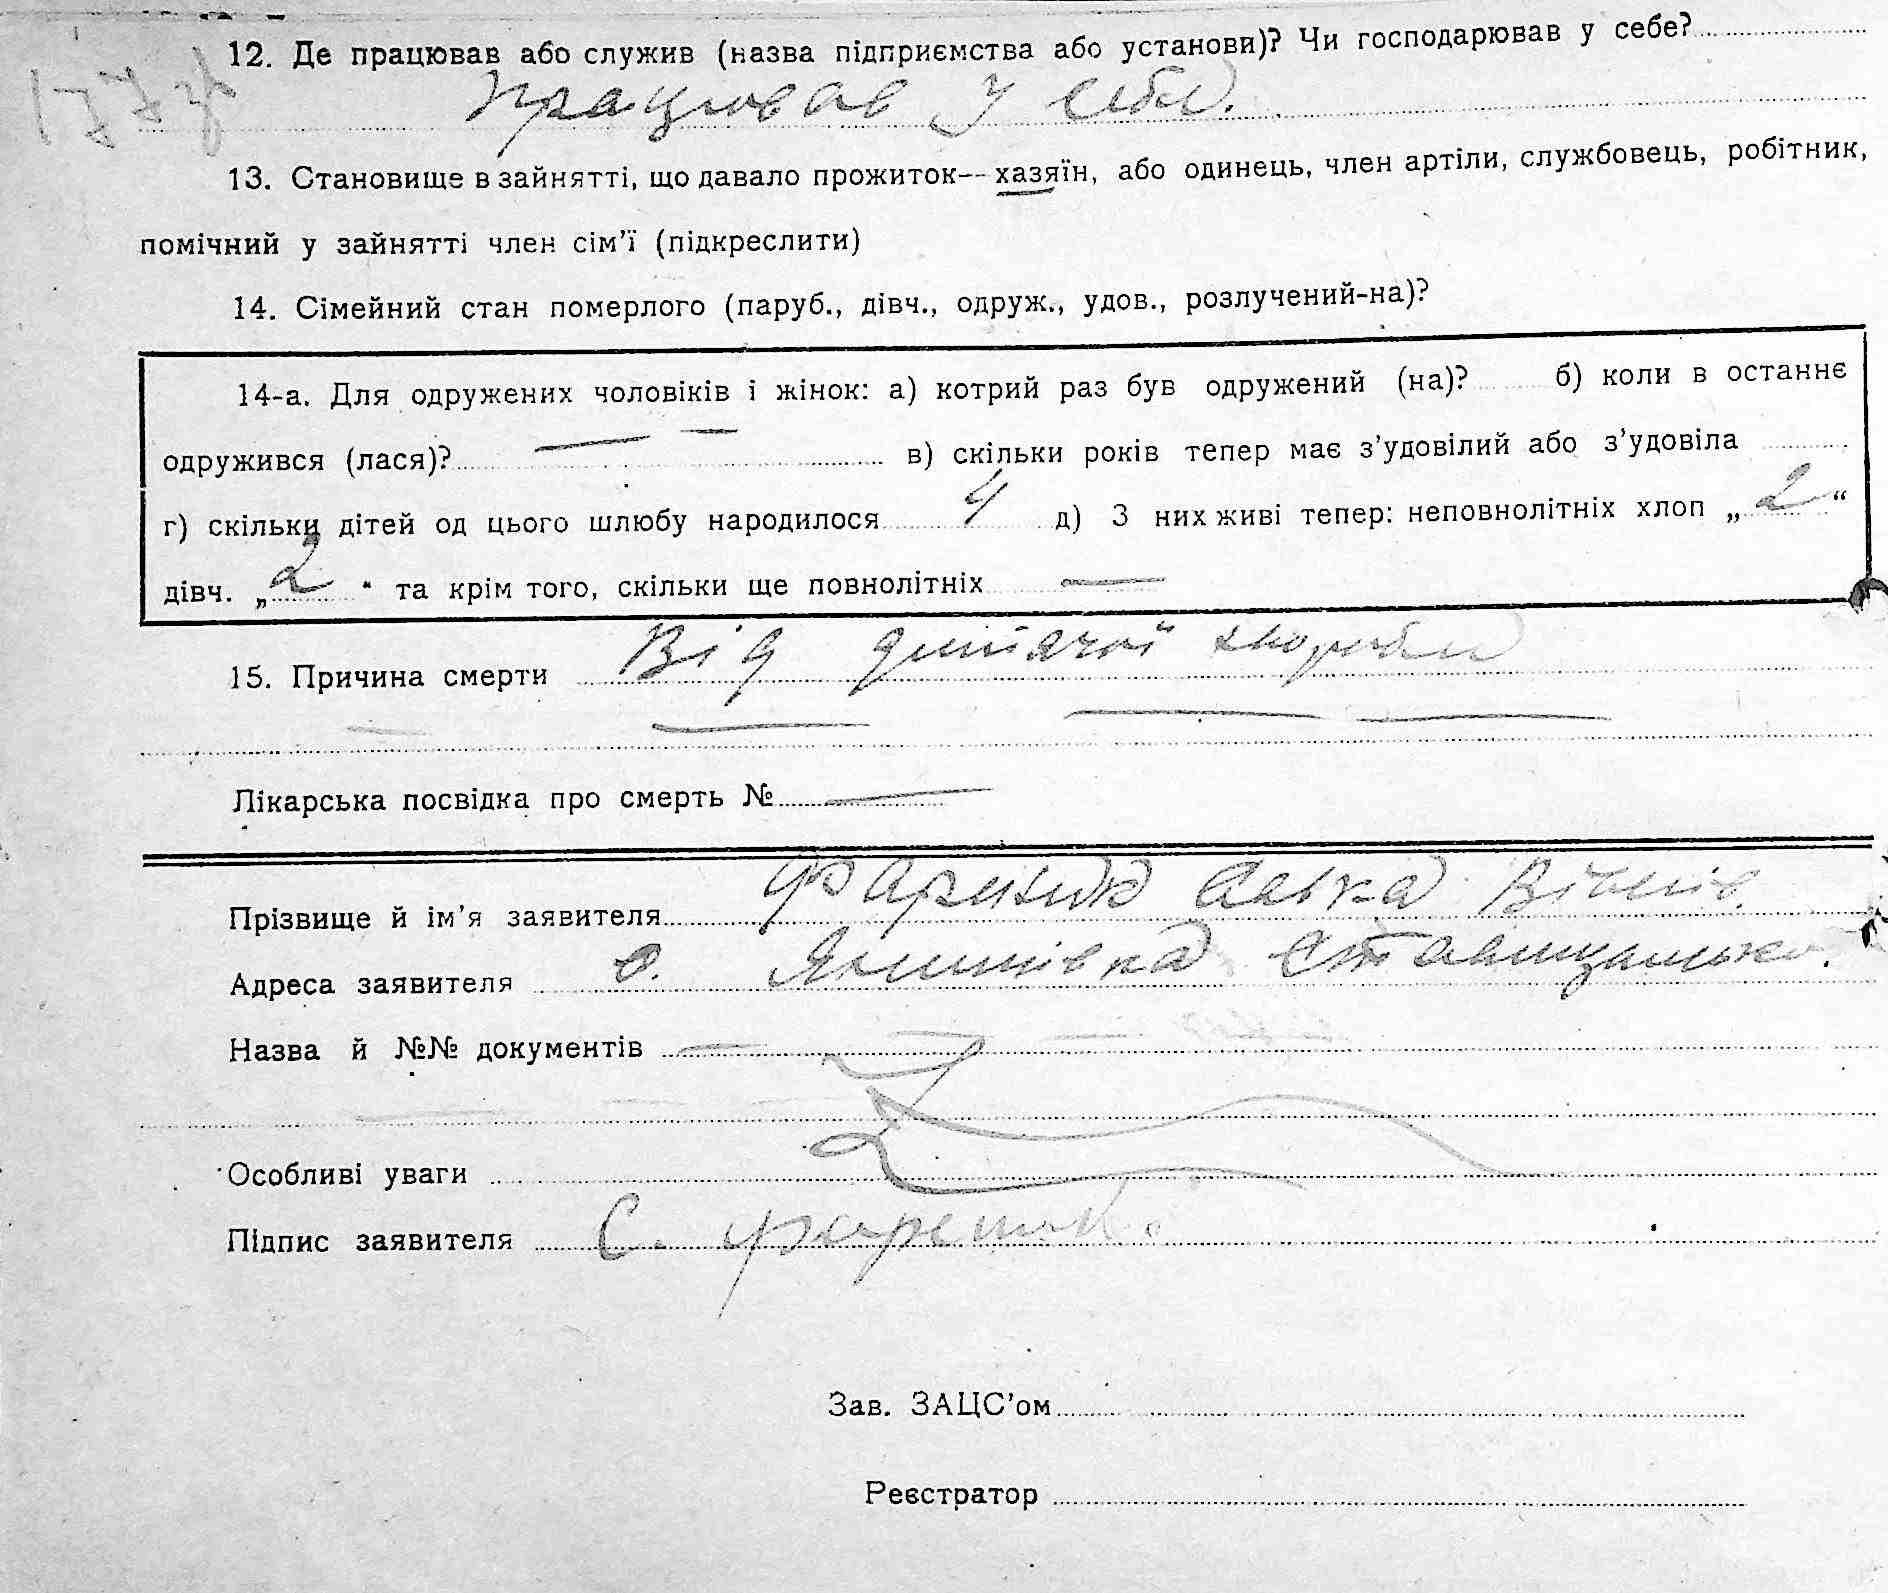 12. Де працював або служив (назва підприємства або установи)? Чи господарював у себе?
177
Працював у себе.
13. Становище в зайнятті, що давало прожиток—хазяїн, або одинець, член артіли, службовець, робітник,
помічний у зайнятті член сім’ї (підкреслити)
14. Сімейний стан померлого (паруб., дівч., одруж., удов., розлучений-на)?
14-а. Для одружених чоловіків і жінок: а) котрий раз був одружений (на)? б) коли в останнє
одружився (лася)? — — в) скільки років тепер має з’удовілий або з’удовіла
г) скільки дітей од цього шлюбу народилося 4 д) З них живі тепер: неповнолітніх хлоп „ 2 “
дівч. „ 2 “ та крім того, скільки ще повнолітніх —
15. Причина смерти Від дитячої хвороби
Лікарська посвідка про смерть № —
Прізвище й ім’я заявителя Савка
Адреса заявителя с. Станищансько.
Назва й №№ документів —
Особливі уваги
Підпис заявителя С.
Зав. ЗАЦС’ом
Реєстратор